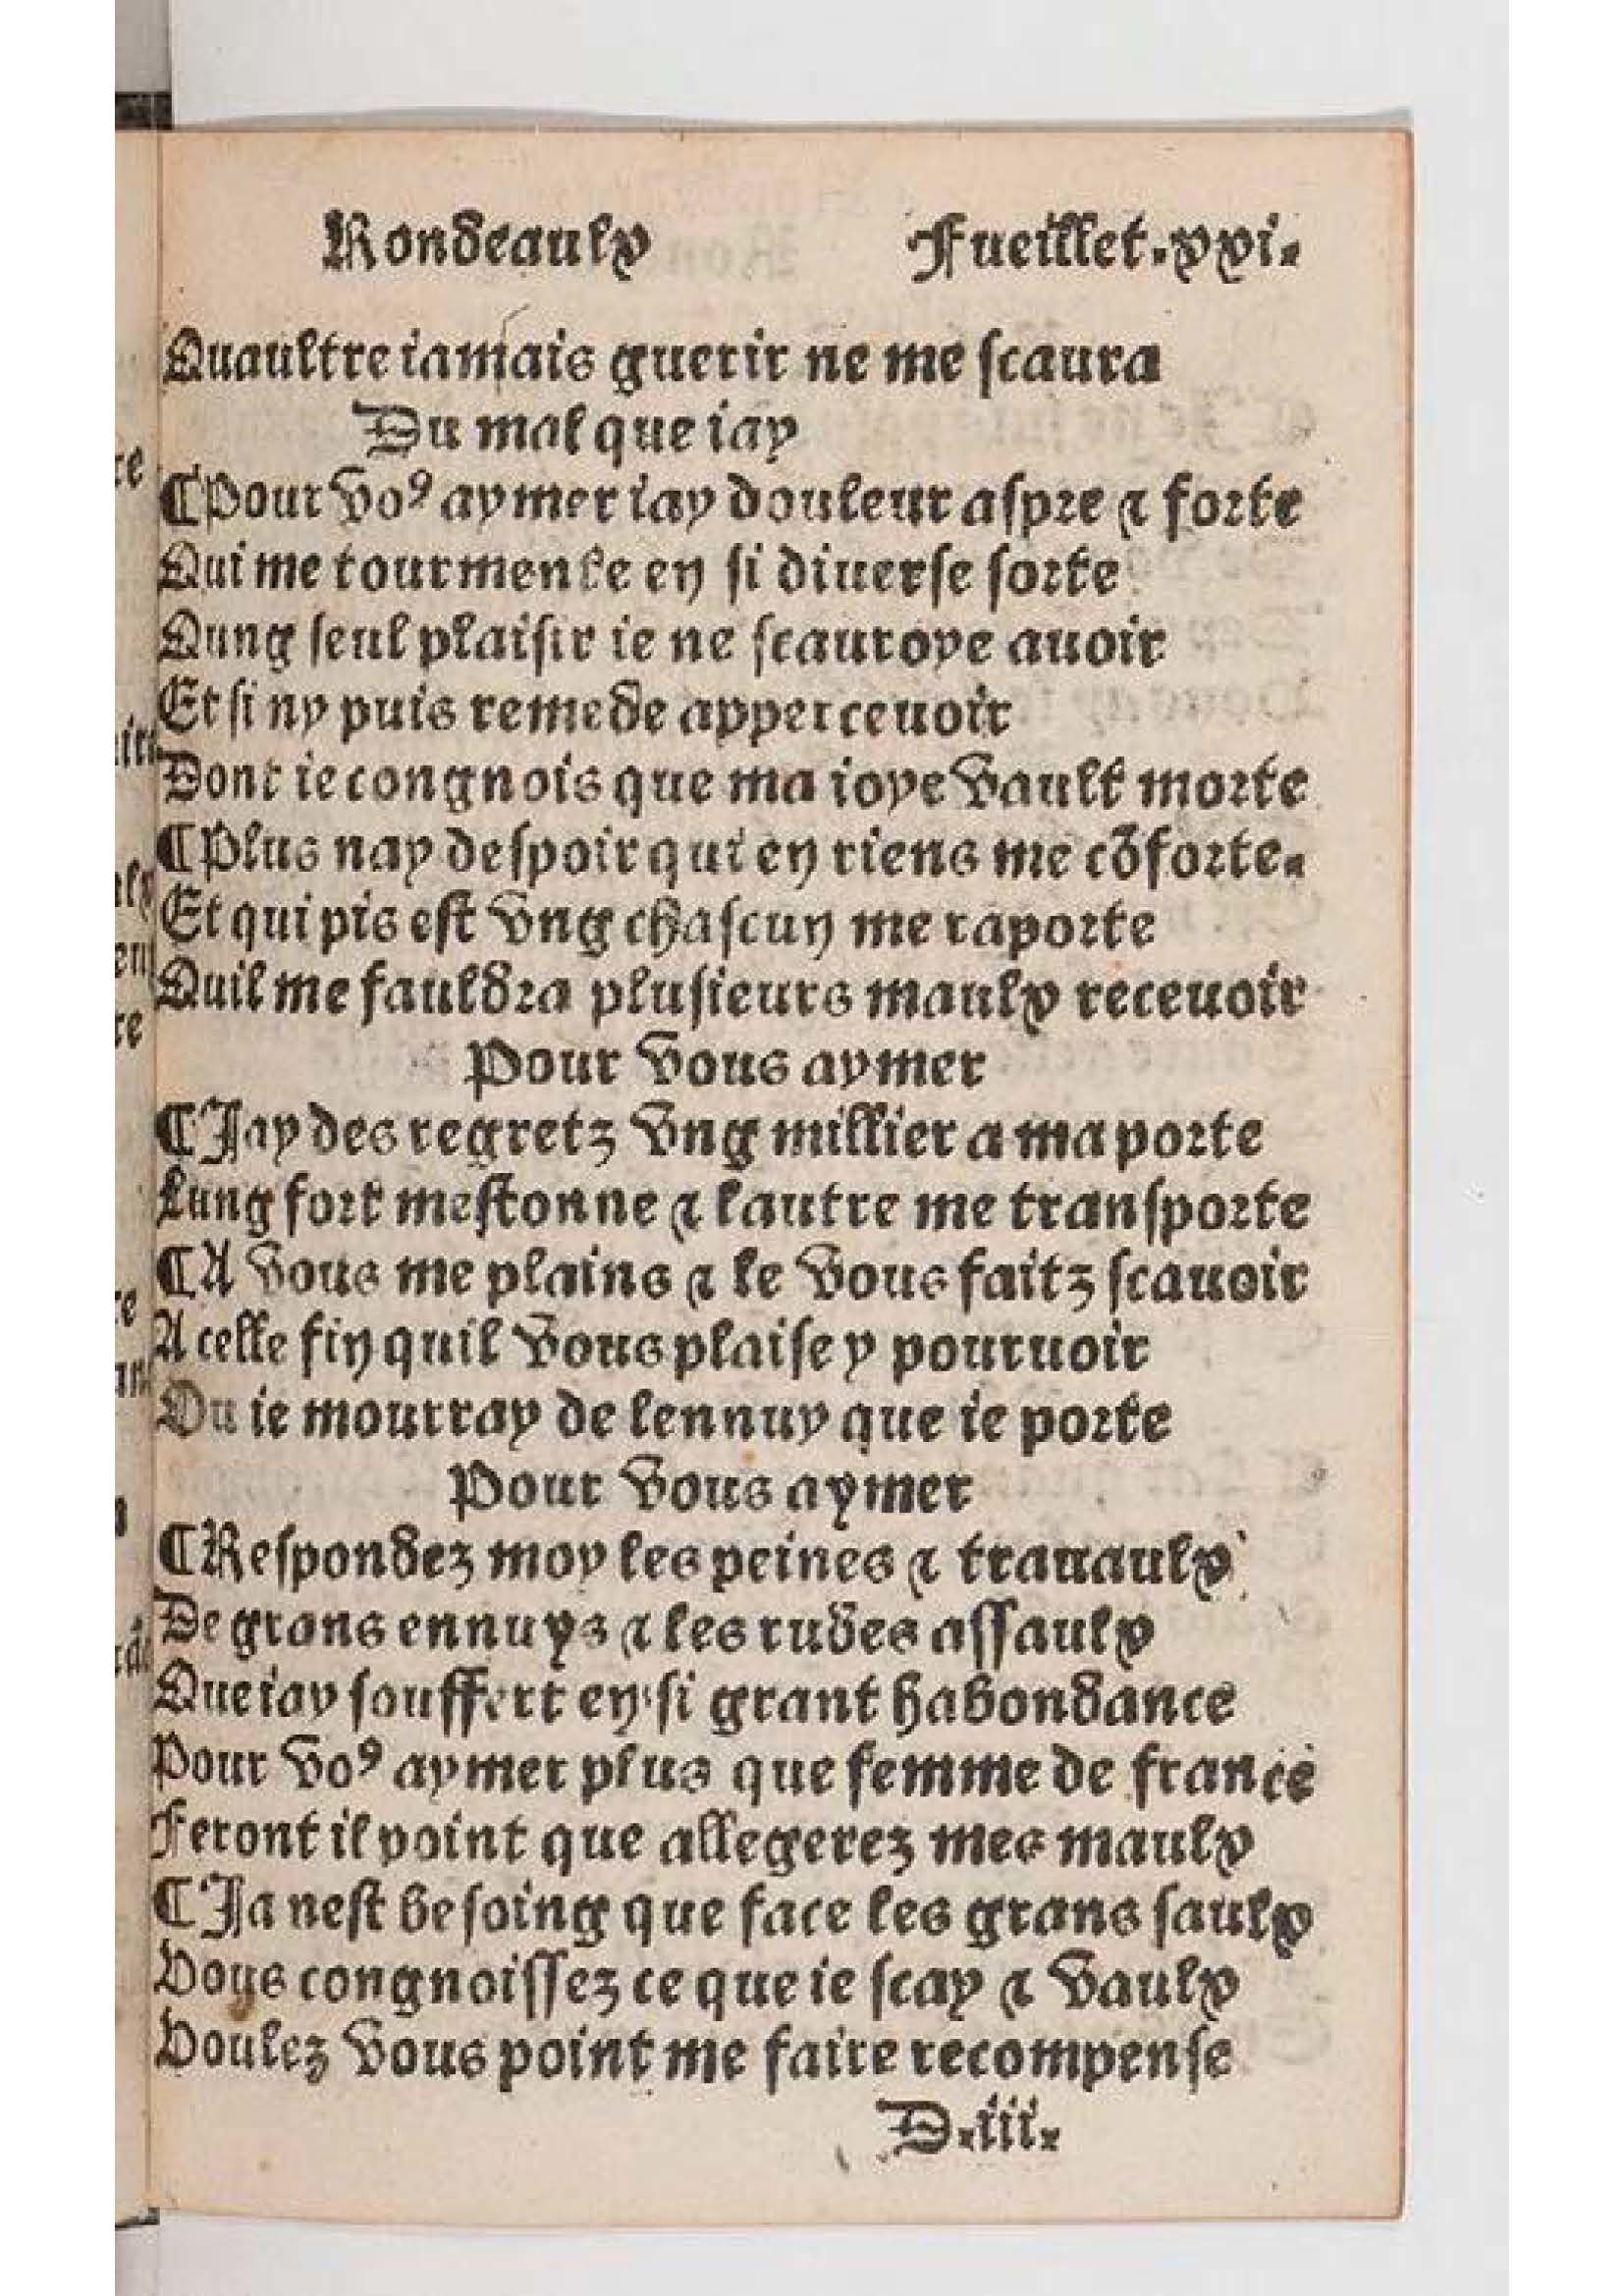 Rondeaulx Fueillet.xxi.
Quaultre iamais guerir ne me scaura
Du mal que iay
¶Pour voꝰ aymer iay douleur aspre ⁊ forte
Qui me tourmente en si diuerse sorte
Qung seul plaisir ie ne scauroye auoir
Et si ny puis remede apperceuoir
Dont ie congnois que ma ioye vault morte
¶Plus nay despoir qui en riens me cōforte.
Et qui pis est vng chascun me raporte
Quil me fauldra plusieurs maulx receuoir
Pour vous aymer
¶Jay des regretz vng millier a ma porte
Lung fort mestonne ⁊ lautre me transporte
¶A vous me plains ⁊ le vous faitz scauoir
A celle fin quil vous plaise y pouruoir
Ou ie mourray de lennuy que ie porte
Pour vous aymer
¶Respondez moy les peines ⁊ trauaulx
De grans ennuys ⁊ les rudes assaulx
Que iay souffert en si grant habondance
Pour voꝰ aymer plus que femme de france
Feront il point que allegerez mes maulx
¶Ja nest besoing que face les grans saulx
Vous congnoissez ce que ie scay ⁊ vaulx
Voulez vous point me faire recompense
D.iii.